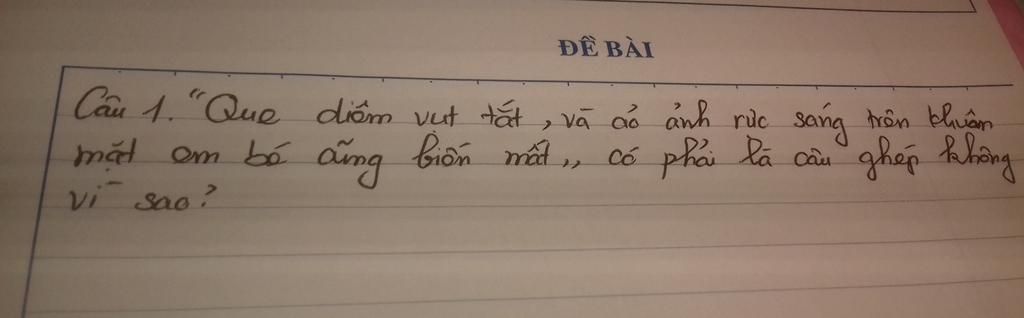 ĐỀ BÀI
Câu 1. "Que diêm vụt tắt, và ảo ảnh rực sáng trên khuôn
mặt em bé cũng biến mất,, có phải là câu ghép không
vì sao?